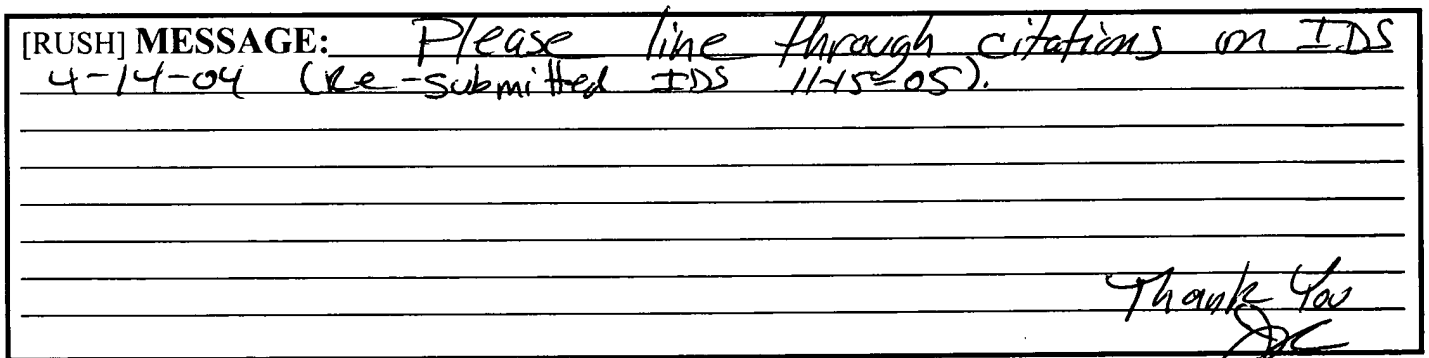 [RUSH] MESSAGE: Please line through citations on IDS
4-14-04 (Re-submitted IDS 11-15-05).
Thank You